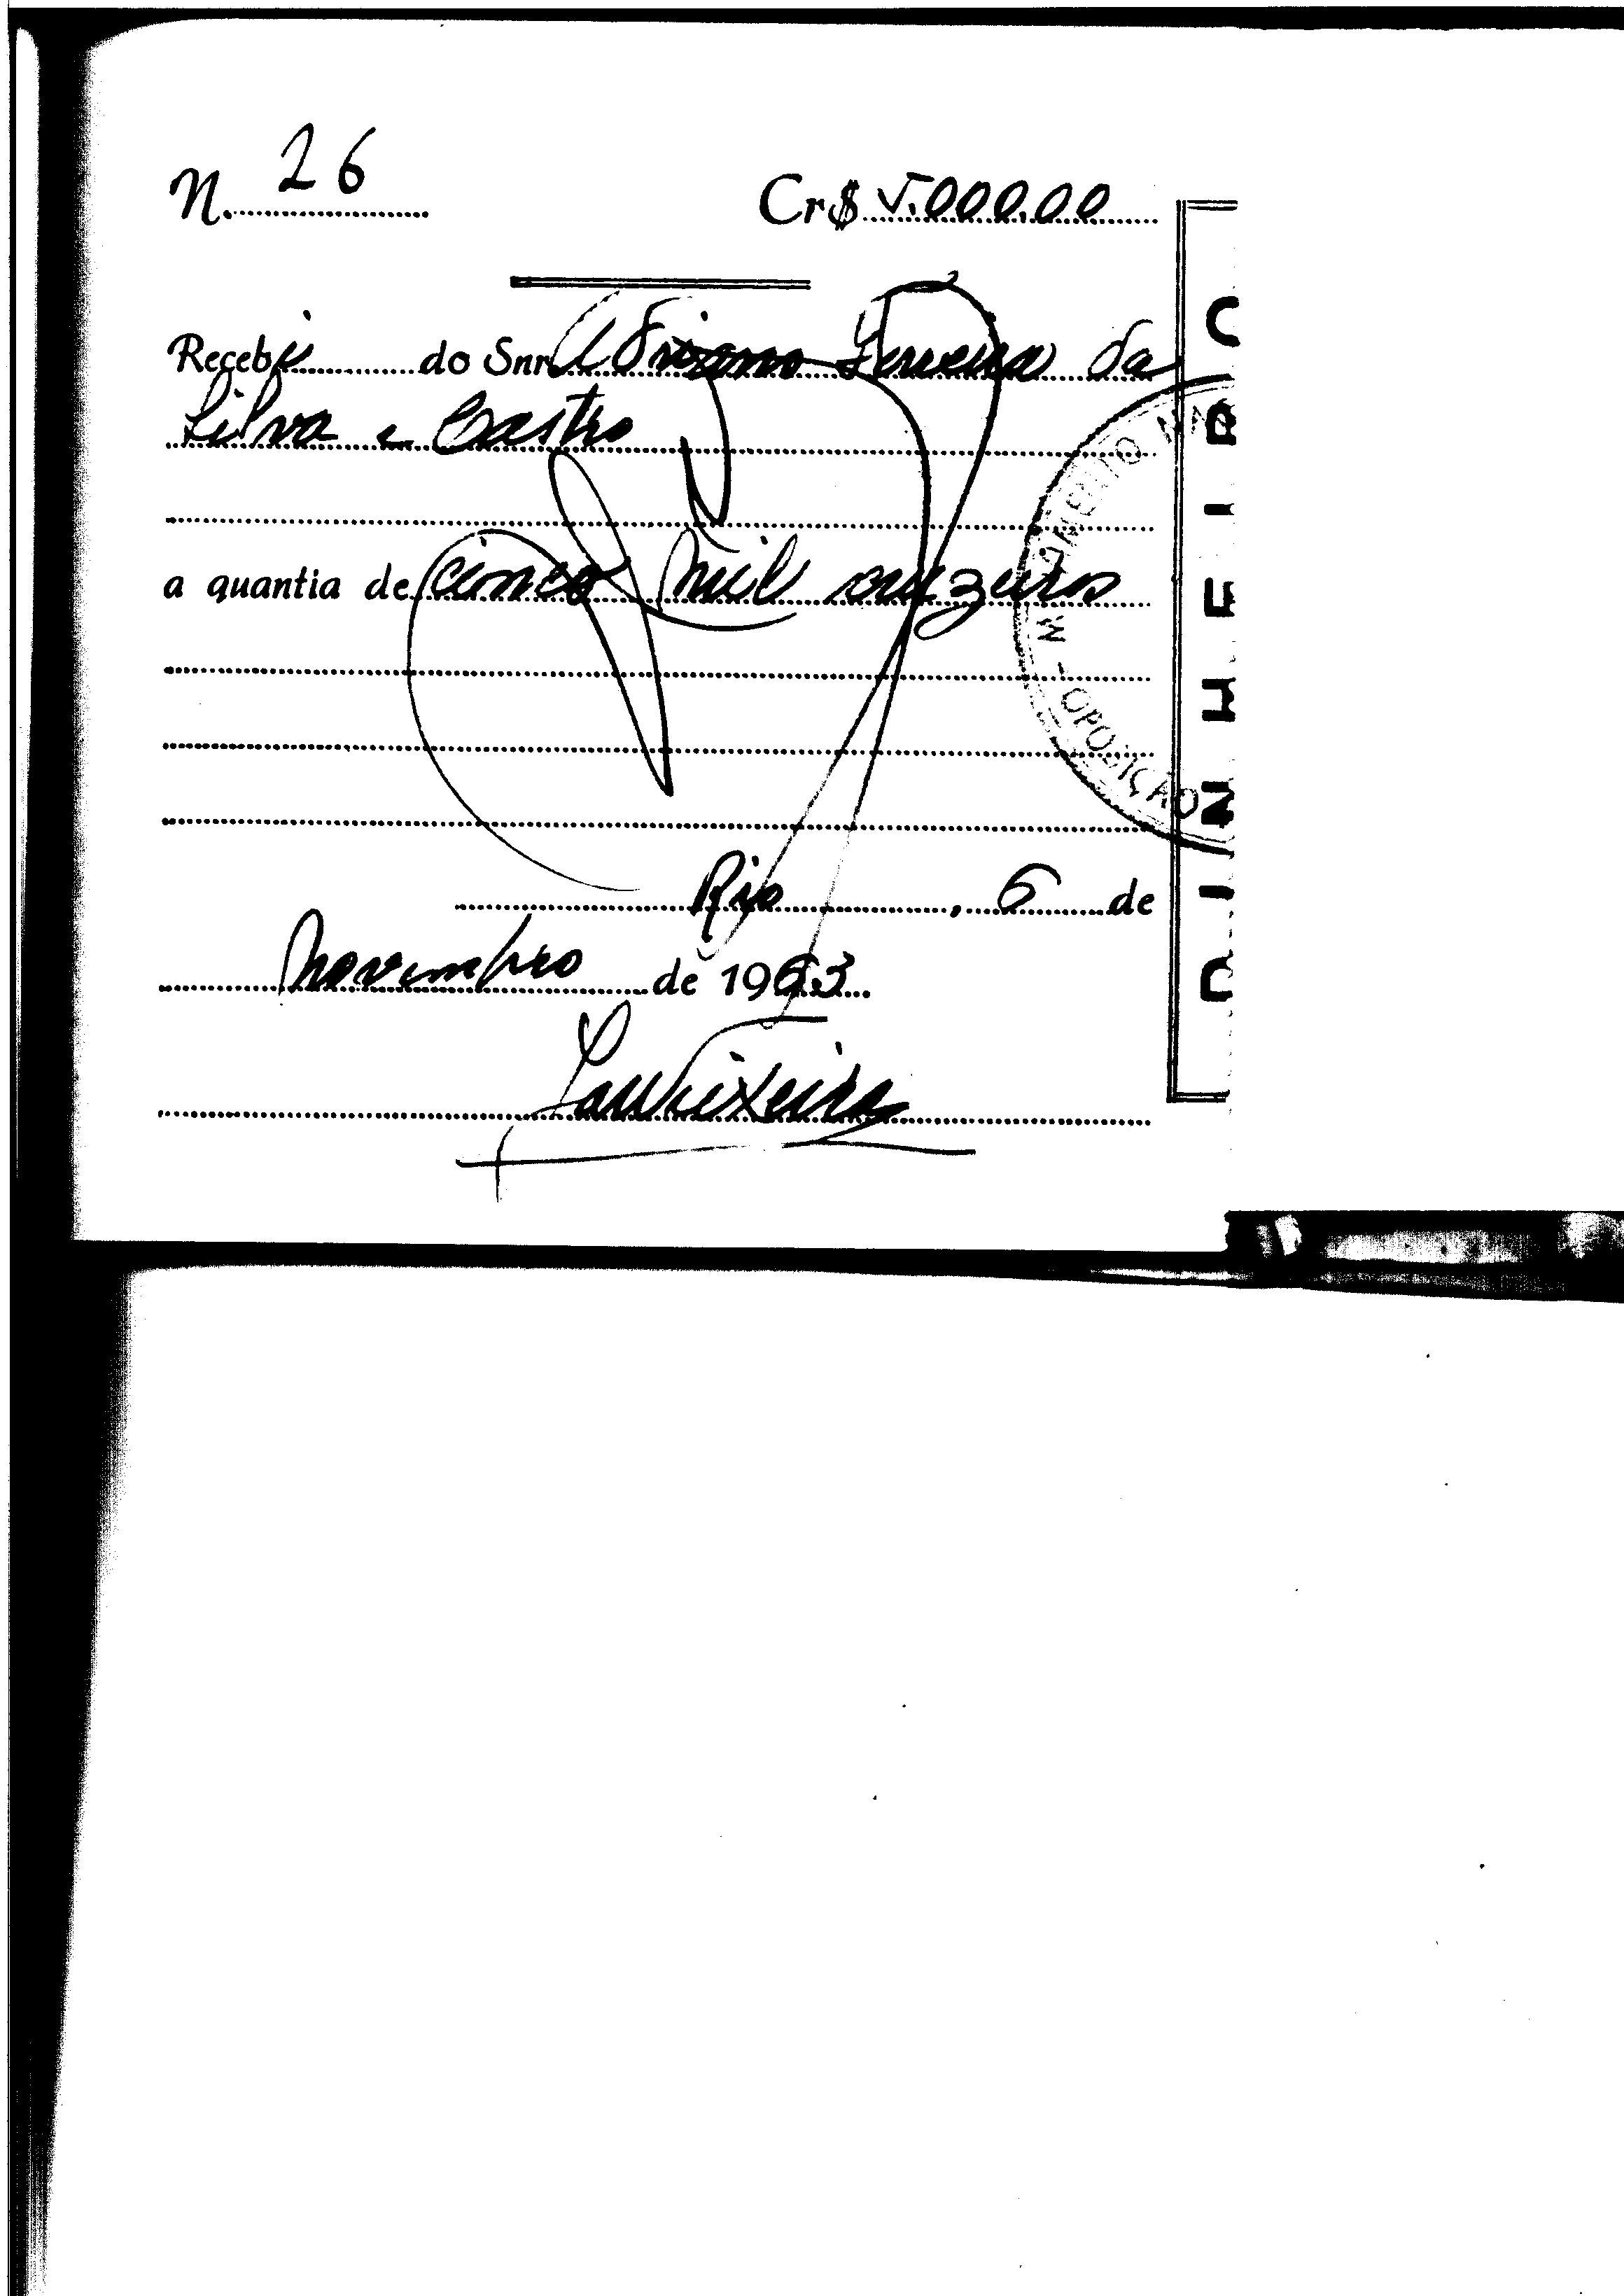 N. 26
Cr$ 5.000,00
Recebi do Snr. Adriano Ferreira da
Silva e Castro
a quantia de cinco mil cruzeiros
Rio, 6 de
novembro de 1963
MOVIMENTO
OPOSIÇÃO
DINHEIRO